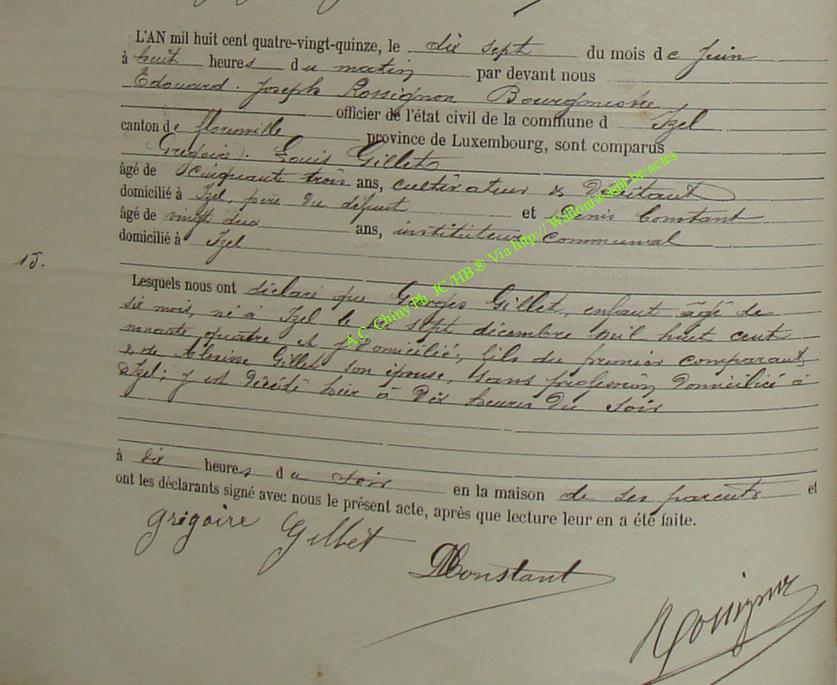 L'AN mil huit cent quatre-vingt-quinze, le dix sept du mois de Juin
à huit heures du matin par devant nous
Edouard Joseph Rossignon Bourgmestre
officier de l'état civil de la commune d Izel
canton de florenville province de Luxembourg, sont comparus
Grégoire Louis Gillet
âgé de cinquante trois ans, cultivateur &
domicilié à Izel, père du défunt et Denis Constant
âgé de vingt deux ans, instituteur communal
domicilié à Izel
15.
Lesquels nous ont déclaré que Georges Gillet, enfant âgé de
six mois, né à Izel le sept décembre mil huit cent
nonante quatre et y domicilié, fils du premier comparant
& de Gillet son épouse, sans profession domiciliée à
Izel; y est décédé hier à dix heures du soir
à dix heures du soir en la maison de ses parents et
ont les déclarants signé avec nous le présent acte, après que lecture leur en a été faite.
grégoire Gillet
DConstant
Rossignon
A.C. Chiny Ph. JC /HB ® Via http:// Wallonia-asbl.be/actes